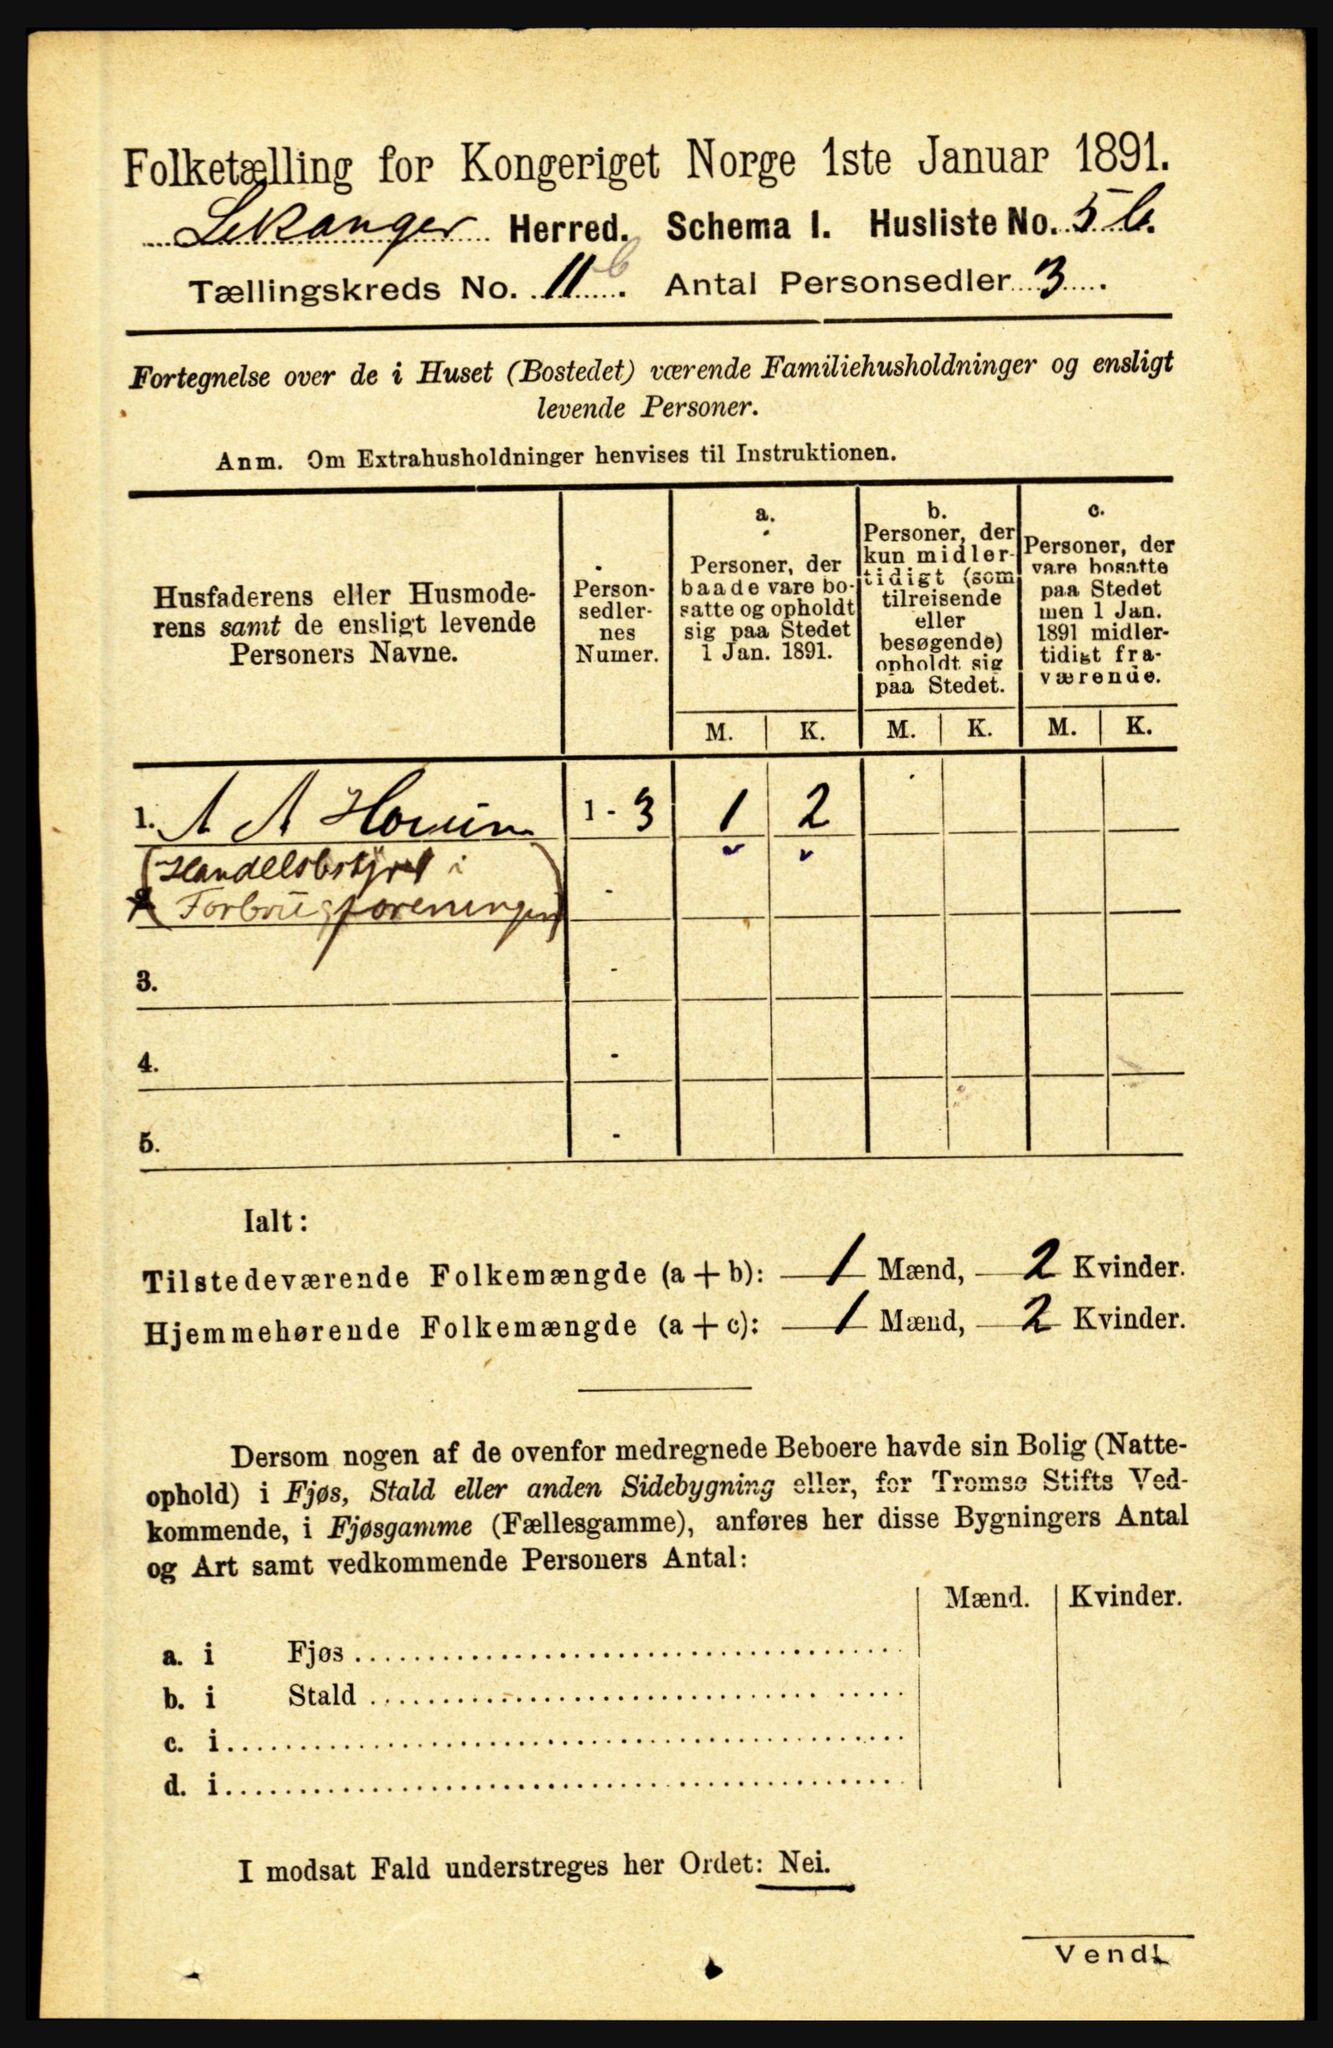 Folketælling for Kongeriget Norge 1ste Januar 1891.
Lekanger Herred. Schema I. Husliste No. 5 b.
Tællingskreds No. 11 b. Antal Personsedler 3.
Fortegnelse over de i Huset (Bostedet) værende Familiehusholdninger og ensligt
levende Personer.
Anm. Om Extrahusholdninger henvises til Instruktionen.
Husfaderens eller Husmode-
rens samt de ensligt levende
Personers Navne.
Person-
sedler-
nes
Numer.
a.
Personer, der
baade vare bo-
satte og opholdt
sig paa Stedet
1 Jan. 1891.
b.
Personer, der
kun midler-
tidigt (som
tilreisende
eller
besøgende)
opholdt sig
paa Stedet.
c.
Personer, der
vare bosatte
paa Stedet
men 1 Jan.
1891 midler-
tidigt fra-
værende.
M. K. M. K. M. K.
1. A A Houm 1 - 3 1 2
(Handelsbstyrer i
Forbrugsforeningen) -
3. -
4. -
5. -
Ialt:
Tilstedeværende Folkemængde (a + b): 1 Mænd, 2 Kvinder.
Hjemmehørende Folkemængde (a + c): 1 Mænd, 2 Kvinder.
Dersom nogen af de ovenfor medregnede Beboere havde sin Bolig (Natte-
ophold) i Fjøs, Stald eller anden Sidebygning eller, for Tromsø Stifts Ved-
kommende, i Fjøsgamme (Fællesgamme), anføres her disse Bygningers Antal
og Art samt vedkommende Personers Antal:
Mænd. Kvinder.
a. i Fjøs
b. i Stald
c. i
d. i
I modsat Fald understreges her Ordet: Nei.
Vend!